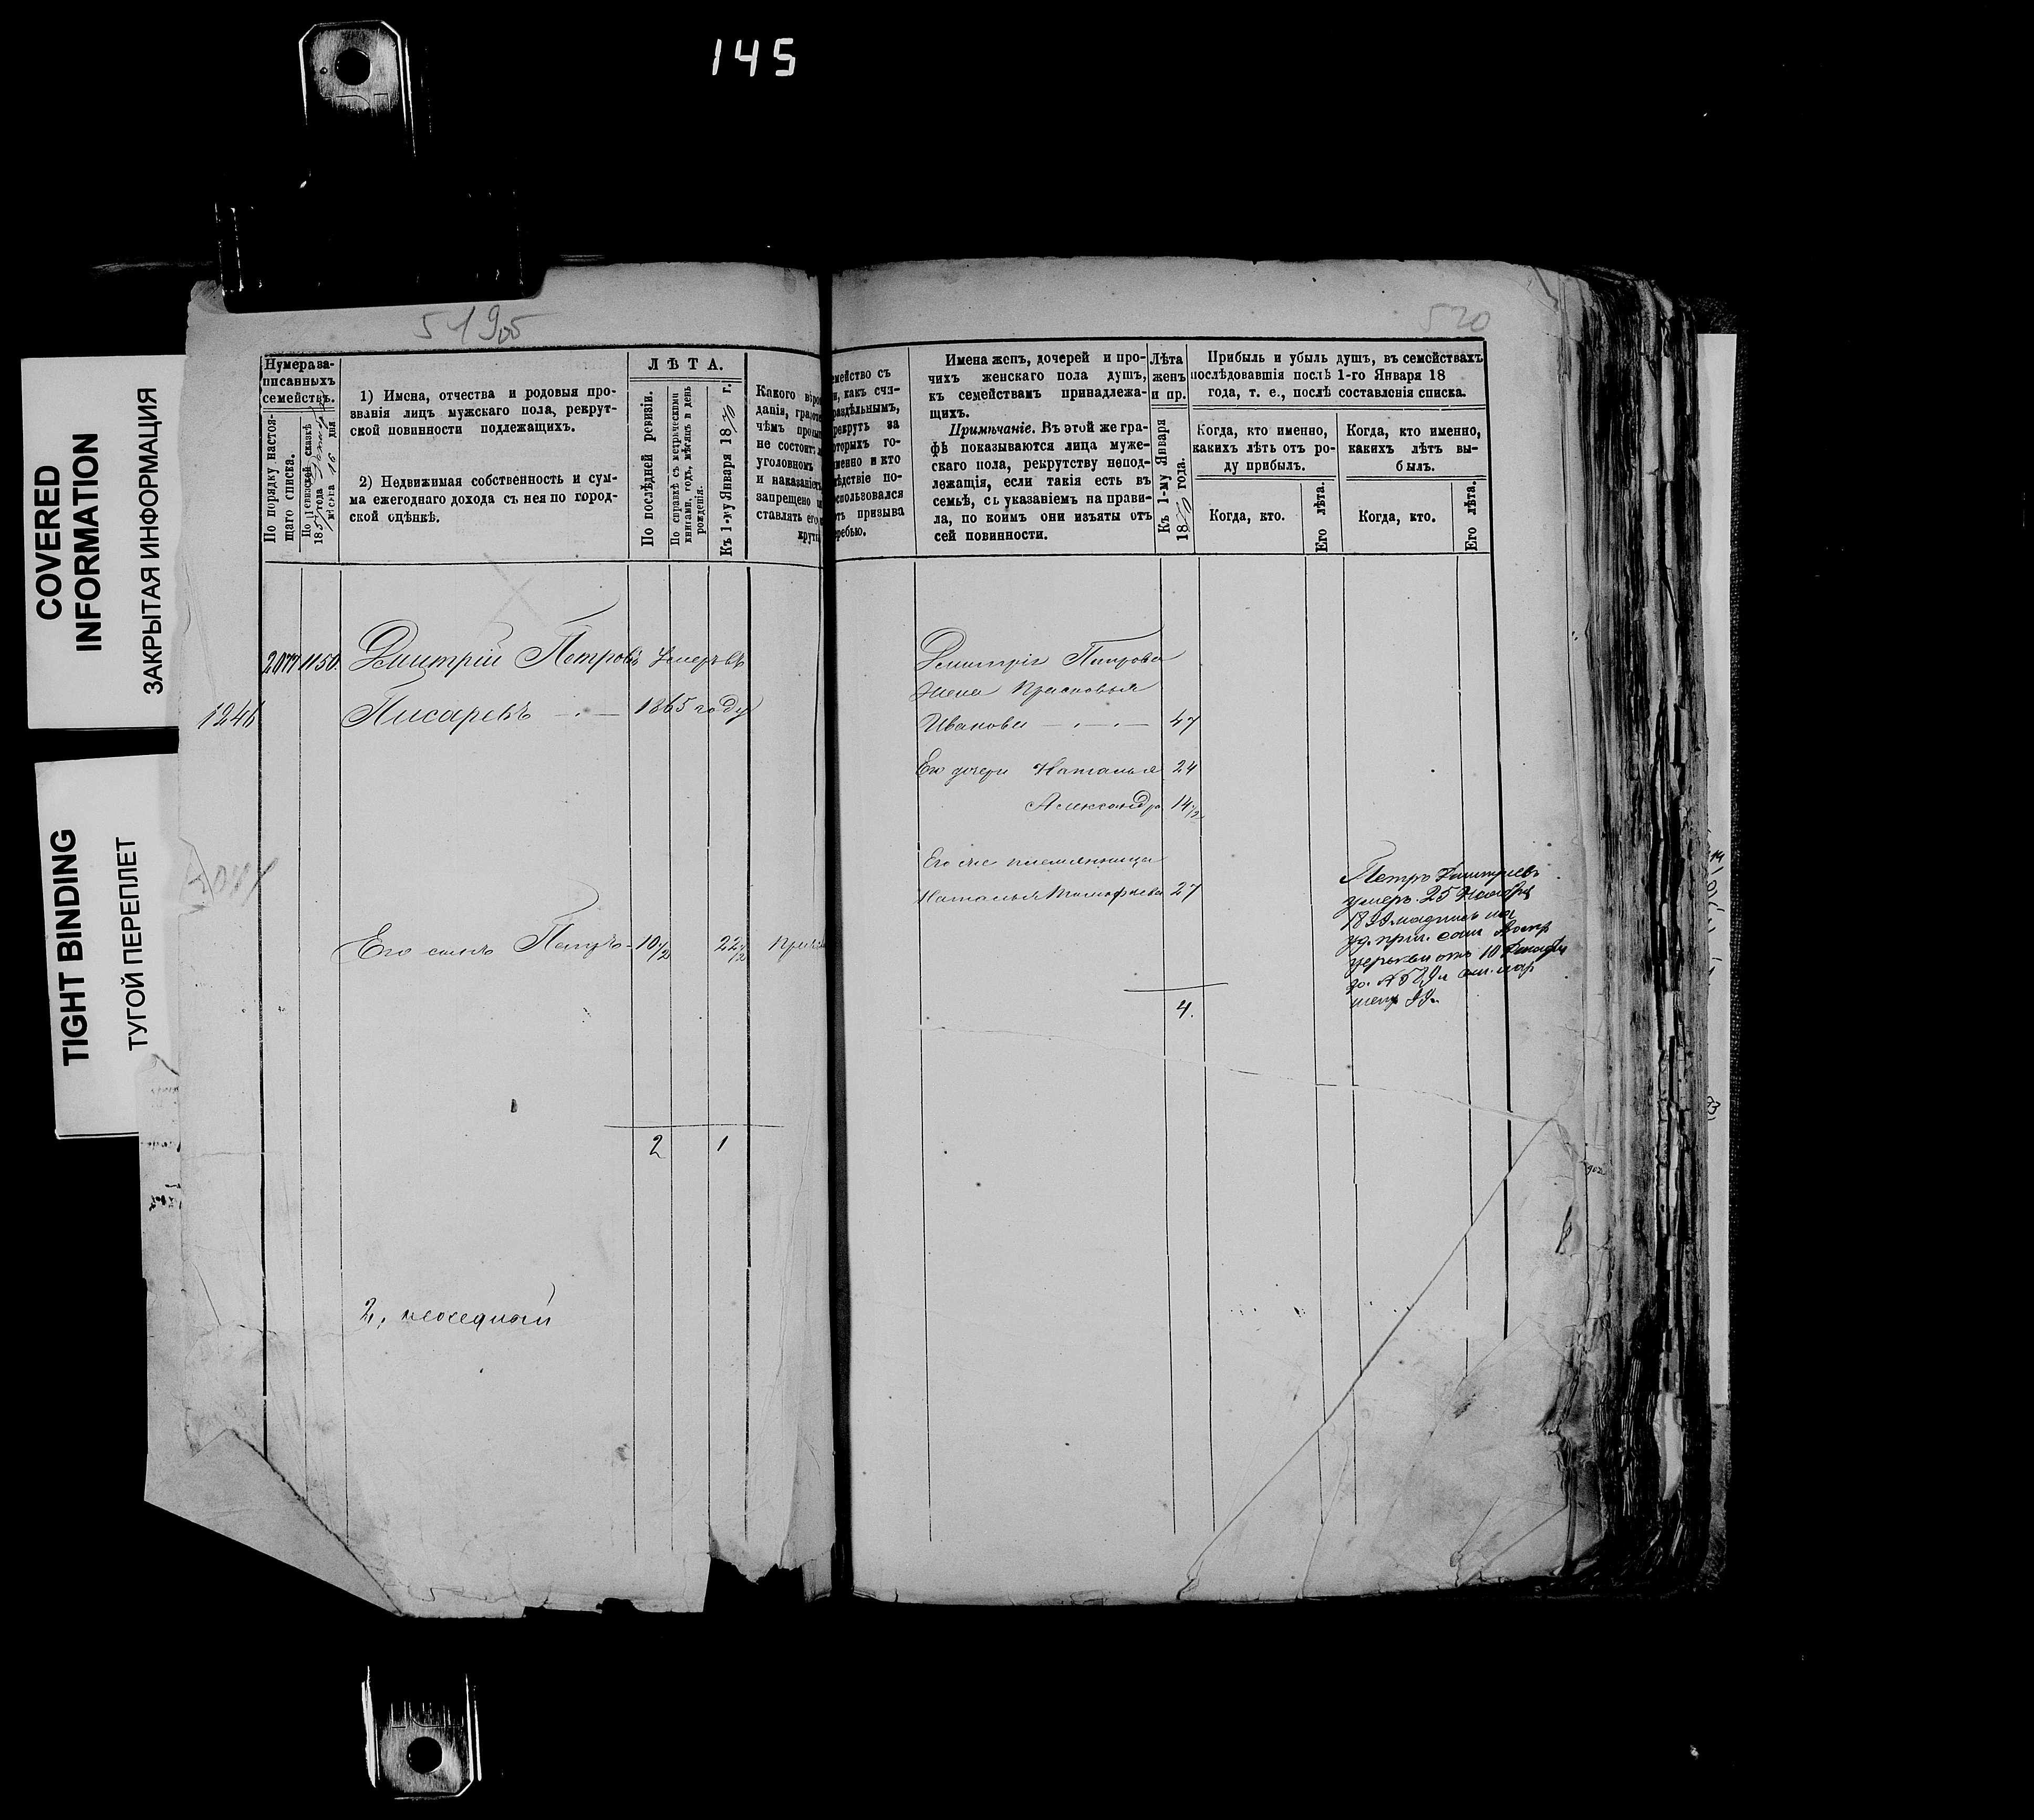 145
COVERED
INFORMATION
ЗАКРЫТАЯ ИНФОРМАЦИЯ
TIGHT BINDING
ТУГОЙ ПЕРЕПЛЕТ
519об
Нумера за-
писанныхъ
семействъ.
По порядку настоя-
щаго списка.
По Ревизской сказкѣ
18 года
мѣсяца 16 дня
1) Имена, отчества и родовыя про-
званія лицъ мужскаго пола, рекрут-
ской повинности подлежащихъ.
2) Недвижимая собственность и сум-
ма ежегоднаго дохода съ нея по город-
ской оцѣнкѣ.
ЛѢТА.
По послѣдней ревизіи.
По справкѣ съ метрическими
книгами, годъ, мѣсяцъ и день
рожденія.
Къ 1-му Января 1870 г.
Какого вѣро
данія, грамоте
чѣмъ промы
не состоитъ л
уголовномъ
и наказаніем
запрещено
ставлять его
крут
2077 1150. Дмитрій Петровъ Умеръ въ
1246 Писаревъ 1865 году
Его сынъ Петръ 10 1/2 22 1/2
2 1
2, неоседлый
520
емейство съ
и, какъ счи-
раздѣльнымъ,
рекрутъ за
оторыхъ го-
менно и кто
лѣдствіе по-
спользовался
отъ призыва
еребью.
Имена женъ, дочерей и про-
чихъ женскаго пола душъ,
къ семействамъ принадлежа-
щихъ.
Примѣчаніе. Въ этой же гра-
фѣ показываются лица муже-
скаго пола, рекрутству непод-
лежащія, если такія есть въ
семьѣ, съ указаніемъ на прави-
ла, по коимъ они изъяты отъ
сей повинности.
Лѣта
женъ
и пр.
Къ 1-му Января
1870 года.
Прибыль и убыль душъ, въ семействахъ
послѣдовавшія послѣ 1-го Января 18
года, т. е., послѣ составленія списка.
Когда, кто именно,
какихъ лѣтъ отъ ро-
ду прибылъ.
Когда, кто именно,
какихъ лѣтъ вы-
былъ.
Когда, кто.
Его лѣта.
Когда, кто.
Его лѣта.
Дмитрія Петрова
жена Прасковья
Иванова 47
Его дочери Наталья 24
Александра 14 1/2
Его же племянница
Наталья Тимофеева 27
4.
Петръ Дмитріевъ
умеръ 25 Ноября